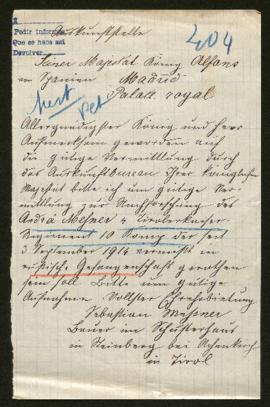 Pedir inform
Que se hace así
Devolver
Auskunftstelle
204
Seiner Majestät König Alfons
in Spanien Madrid
Palast royal
Allergnädigster König und Herr
Aufmerksam geworden auf
die gütige Vermittlung durch
das Auskunftbureau Ihrer königlichen
Majestät bitte ich um gütige Ver-
mittlung zur Nachforschung des
Andrä Messner 4 Tirolerkaiser
Regiment 10 Komp der seit
3 September 1914 vermisst in
russische Gefangenschaft gerathen
sein soll. Bitte um gütige
Aufnahme. Vollster Ehrerbietung
Sebastian Messner
Bauer im Schusterhaus
in Steinberg bei Achenkirch
in Tirol